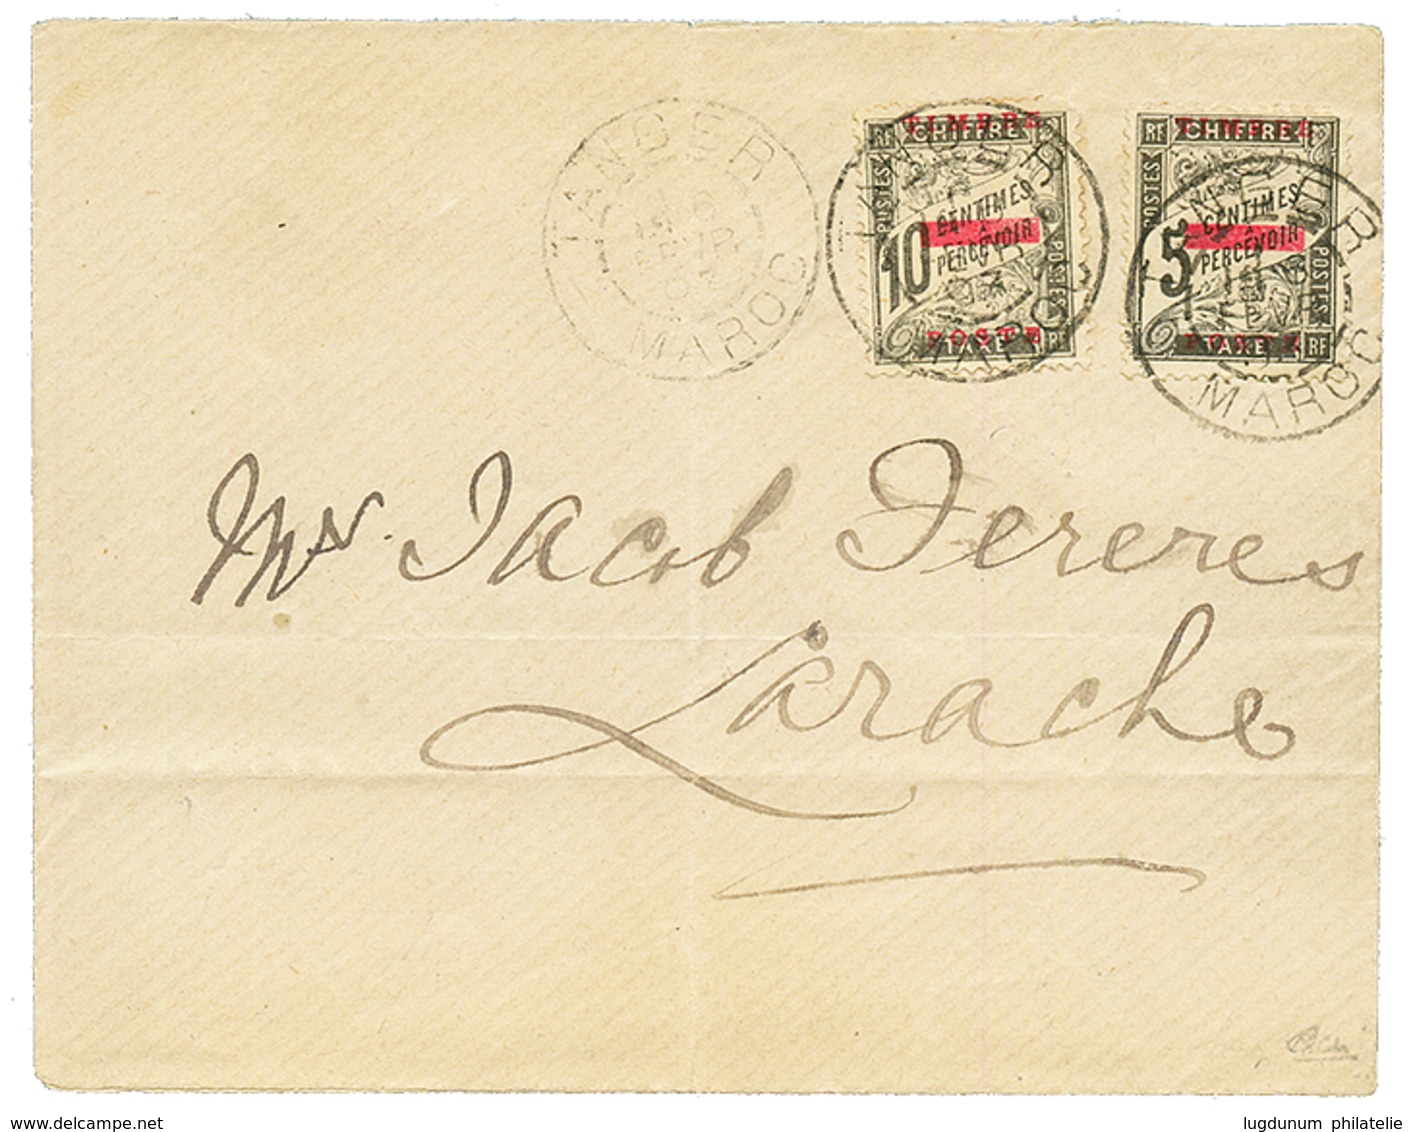 TANGER
MAROC
TIMBRE
RF CHIFFRE
POSTES
10 CENTIMES
À
PERCEVOIR
POSTES
POSTE
TAXE RF
TANGER
MAROC
TIMBRE
RF CHIFFRE
POSTES
5 CENTIMES
À
PERCEVOIR
POSTES
POSTE
TAXE RF
TANGER
MAROC
Mr. Jacob Fereres
Larache
www.delcampe.net
lugdunum philatelie